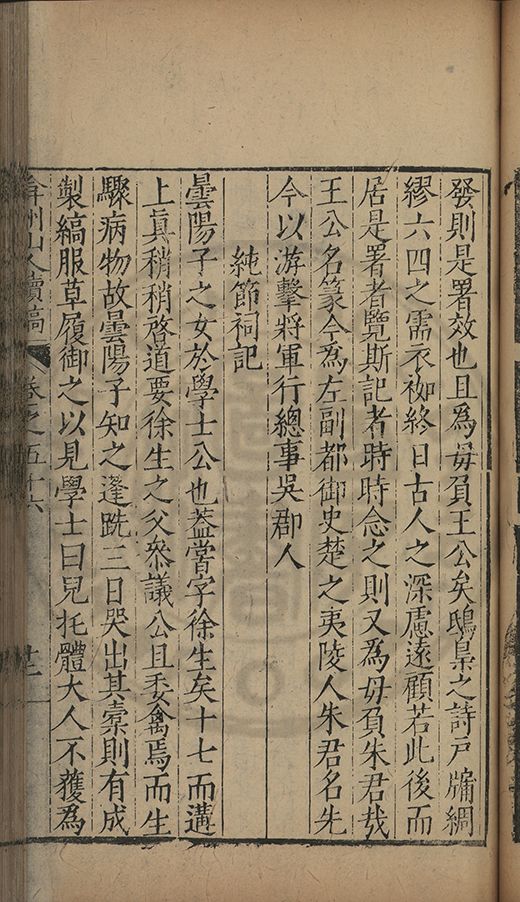 發則是署效也且為毋負王公矣鴟梟之詩戸牖綢
繆六四之需衣袽終日古人之深慮遠顧若此後而
居是署者覽斯記者時時念之則又為毋負朱君哉
王公名篆今為左副都御史楚之夷陵人朱君名先
今以游擊將軍行總事吳郡人
純節祠記
曇陽子之女於學士公也葢嘗字徐生矣十七而遘
上真稍稍啓道要徐生之父叅議公且委禽焉而生
驟病物故曇陽子知之蓬跣三日哭出其橐則有成
製縞服草履御之以見學士曰兒托體大人不獲為
弇州山人續稿 卷之五十六 廿一